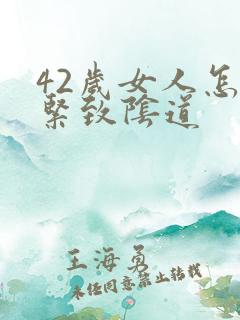 42歲女人怎
緊致陰道
王海勇
未经同意禁止转载